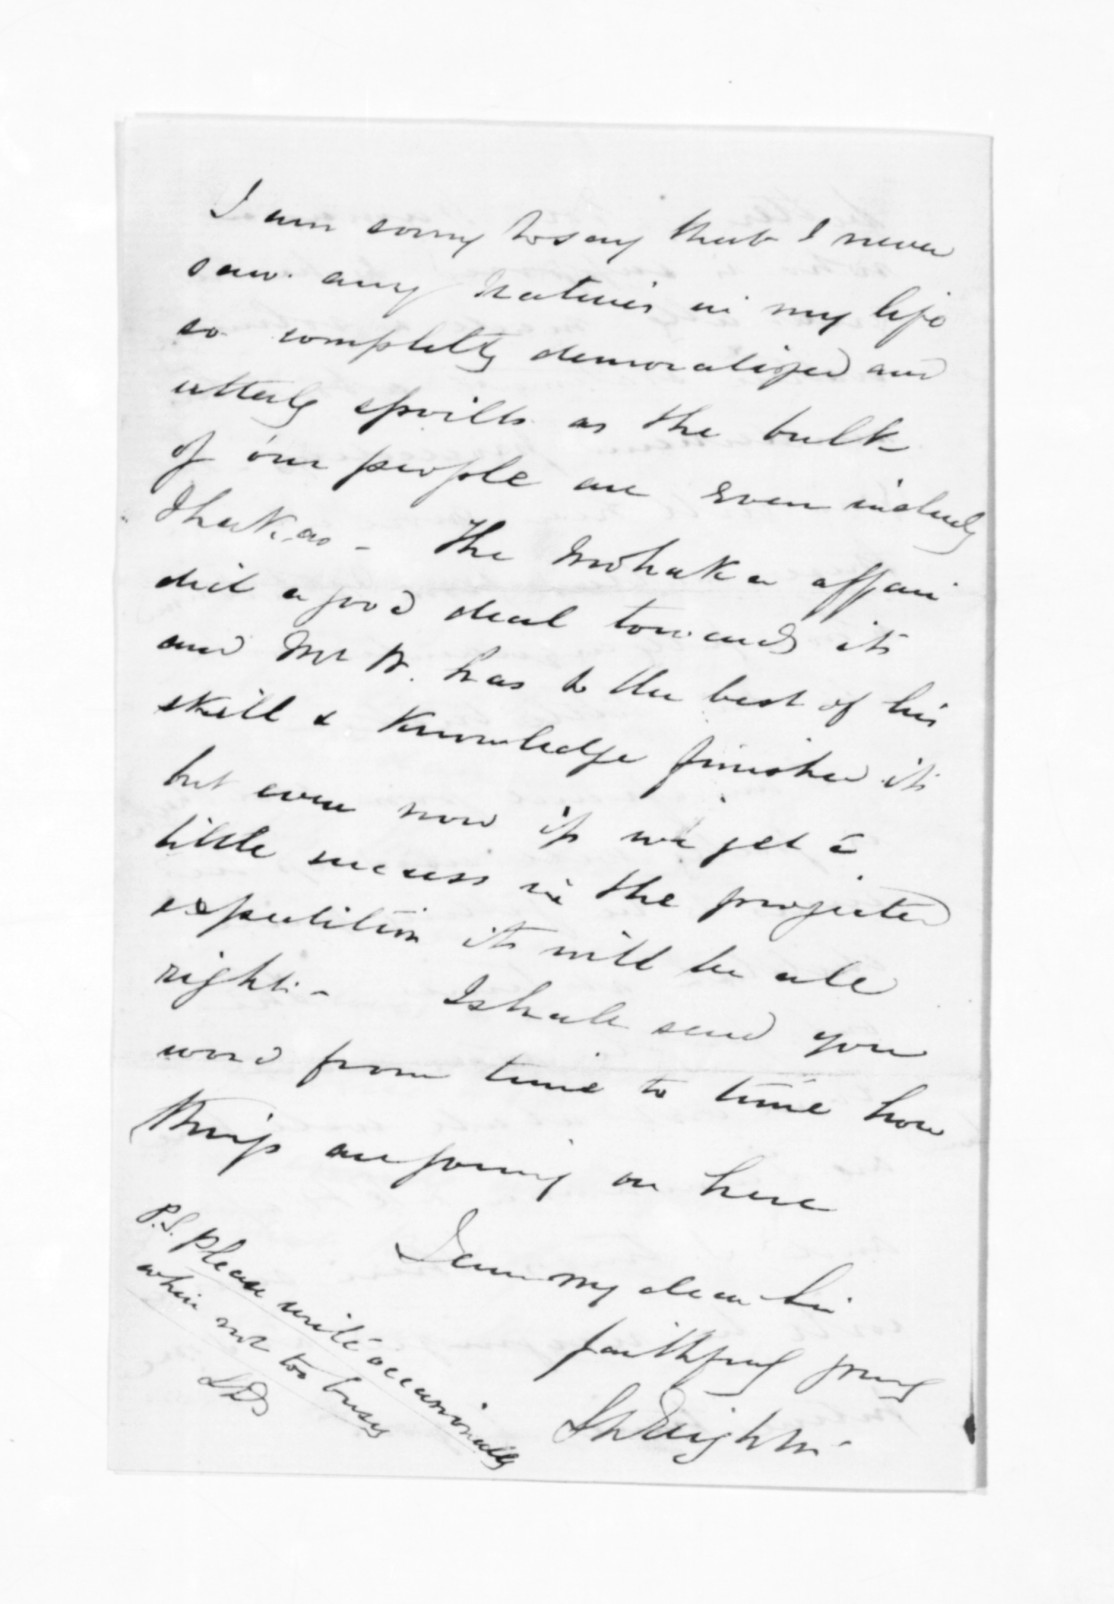 I am sorry to say that I never
saw any Natives in my life
so completely demoralized and
utterly spoilt as the bulk
of our people are even including
Ihakao - The Mohaka affair
did a good deal towards it
and Mr W. has to the best of his
skill & knowledge finished it
but even now if we get a
little success in the projected
expedition it will be all
right. - I shall send you
word from time to time how
things are going on here
I am my dear Sir
faithfully yours
P.S. Please write occasionally
when not too busy